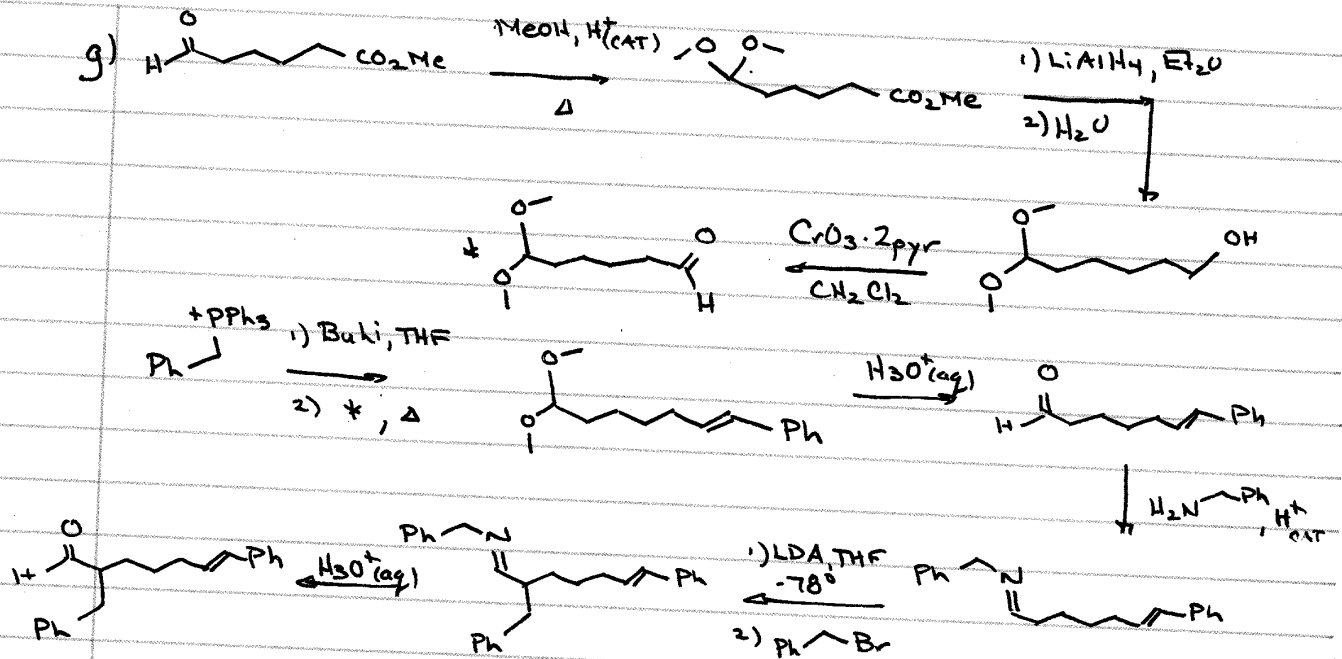 g) O H CO2Me MeOH, H+(CAT) Δ O O CO2Me 1) LiAlH4, Et2O
2) H2O
O O O H CrO3·2pyr CH2Cl2 O O OH
+PPh3 Ph 1) BuLi, THF 2) *, Δ O O Ph H3O+(aq) O H Ph
*
H2N Ph, H+ CAT
O H Ph Ph H3O+(aq) Ph N Ph Ph 1) LDA, THF -78° 2) Ph Br Ph N Ph